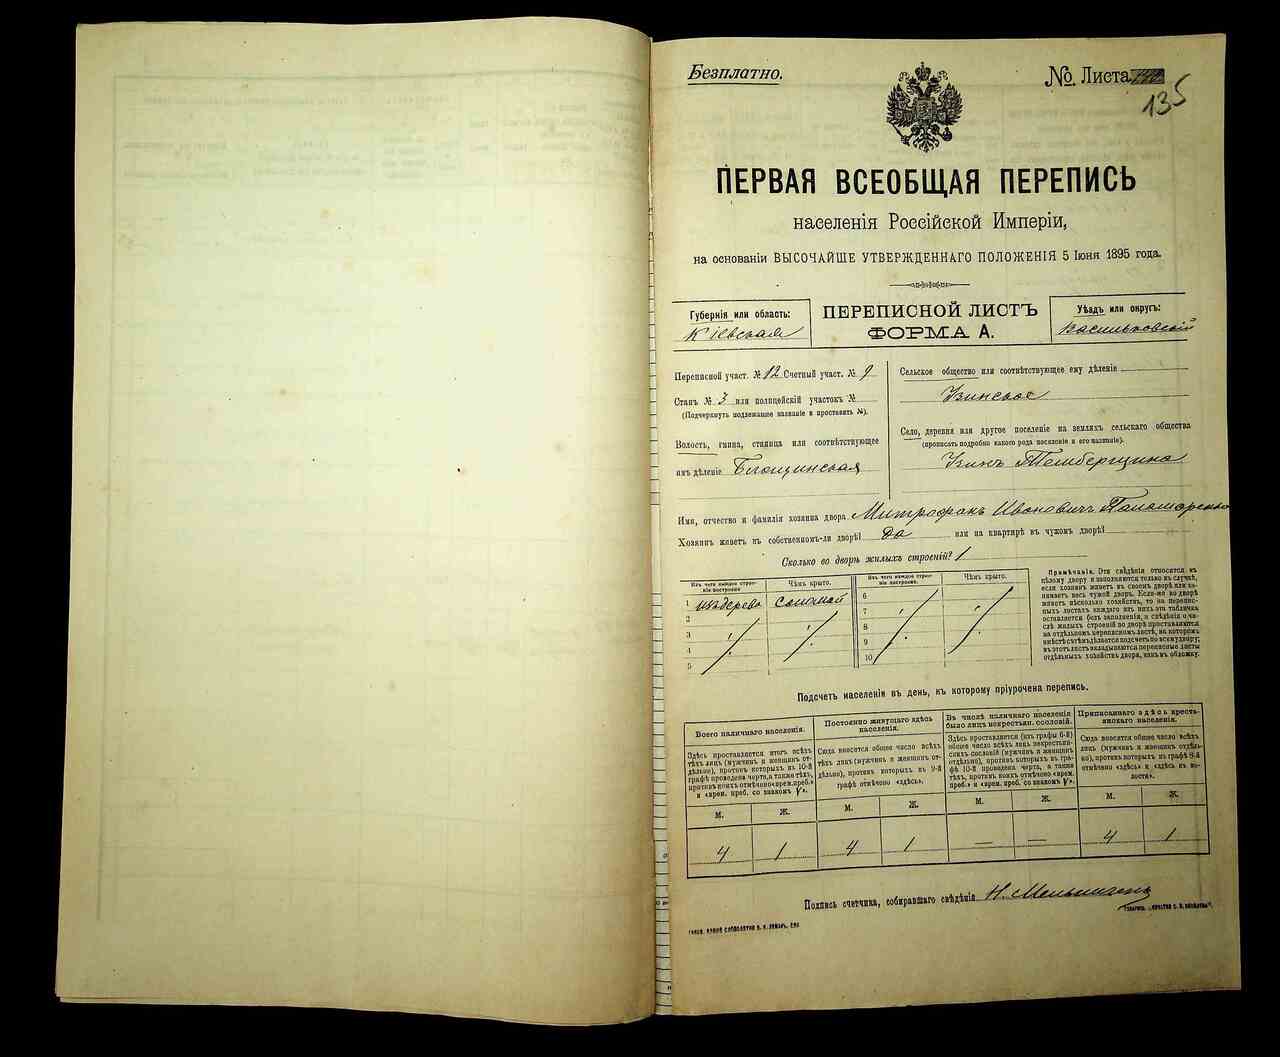 Безплатно.
№ Листа
135
ПЕРВАЯ ВСЕОБЩАЯ ПЕРЕПИСЬ
населенія Россійской Имперіи,
на основаніи ВЫСОЧАЙШЕ УТВЕРЖДЕННАГО ПОЛОЖЕНІЯ 5 Іюня 1895 года.
Губернія или область:
Кіевская
ПЕРЕПИСНОЙ ЛИСТЪ
ФОРМА А.
Уѣздъ или округъ:
Васильковскій
Переписной участ. № 12 Счетный участ. № 9
Станъ № 3 или полицейскій участокъ №
(Подчеркнуть подлежащее названіе и проставить №).
Волость, гмина, станица или соотвѣтствующее
имъ дѣленіе
Сельское общество или соотвѣтствующее ему дѣленіе
Узинское
Село, деревня или другое поселеніе на земляхъ сельскаго общества
(прописать подробно какого рода поселеніе и его названіе).
Узинъ Темберщина
Имя, отчество и фамилія хозяина двора Митрофанъ Ивановичъ Паномаренко
Хозяинъ живетъ въ собственномъ-ли дворѣ? да или на квартирѣ въ чужомъ дворѣ?
Сколько во дворѣ жилыхъ строеній? 1
Изъ чего каждое строеніе построено.
Чѣмъ крыто.
Изъ чего каждое строеніе построено.
Чѣмъ крыто.
1 изъ дерева соломой
2
3
4
5
6
7
8
9
10
Примѣчанія. Эти свѣдѣнія относятся къ
цѣлому двору и заполняются только въ случаѣ,
если хозяинъ живетъ въ своемъ дворѣ или занимаетъ весь чужой дворъ. Если-же во дворѣ
живетъ нѣсколько хозяйствъ, то на переписныхъ листахъ каждаго изъ нихъ эта табличка
оставляется безъ заполненія, а свѣдѣнія о числѣ жилыхъ строеній во дворѣ проставляются
на отдѣльномъ переписномъ листѣ, на которомъ
вмѣстѣ съ тѣмъ дѣлается подсчетъ по всему двору;
въ этотъ листъ вкладываются переписные листы
отдѣльныхъ хозяйствъ двора, какъ въ обложку.
Подсчетъ населенія въ день, къ которому пріурочена перепись.
Всего наличнаго населенія.
Постоянно живущаго здѣсь населенія.
Въ числѣ наличнаго населенія было лицъ некрестьян. сословій.
Приписаннаго здѣсь крестьянскаго населенія.
Здѣсь проставляется итогъ всѣхъ
лицъ (мужчинъ и женщинъ отдѣльно), противъ которыхъ въ 10-й
графѣ проведена черта, а также тѣхъ,
противъ коихъ отмѣчено «врем. преб.»
и «врем. преб. со знакомъ V».
Сюда вносится общее число всѣхъ
тѣхъ лицъ (мужчинъ и женщинъ отдѣльно), противъ которыхъ въ 9-й
графѣ отмѣчено «здѣсь».
Здѣсь проставляется (изъ графы 6-й)
общее число всѣхъ лицъ некрестьянскихъ сословій (мужчинъ и женщинъ
отдѣльно), противъ которыхъ въ графѣ 10-й проведена черта, а также
тѣхъ, противъ коихъ отмѣчено «врем.
преб.» и «врем. преб. со знакомъ V».
Сюда вносится общее число всѣхъ
лицъ (мужчинъ и женщинъ отдѣльно), противъ которыхъ въ графѣ 8-й
отмѣчено «здѣсь» и «здѣсь въ волости».
М. Ж. М. Ж. М. Ж. М. Ж.
4 1 4 1 — — 4 1
Подпись счетчика, собиравшаго свѣдѣнія